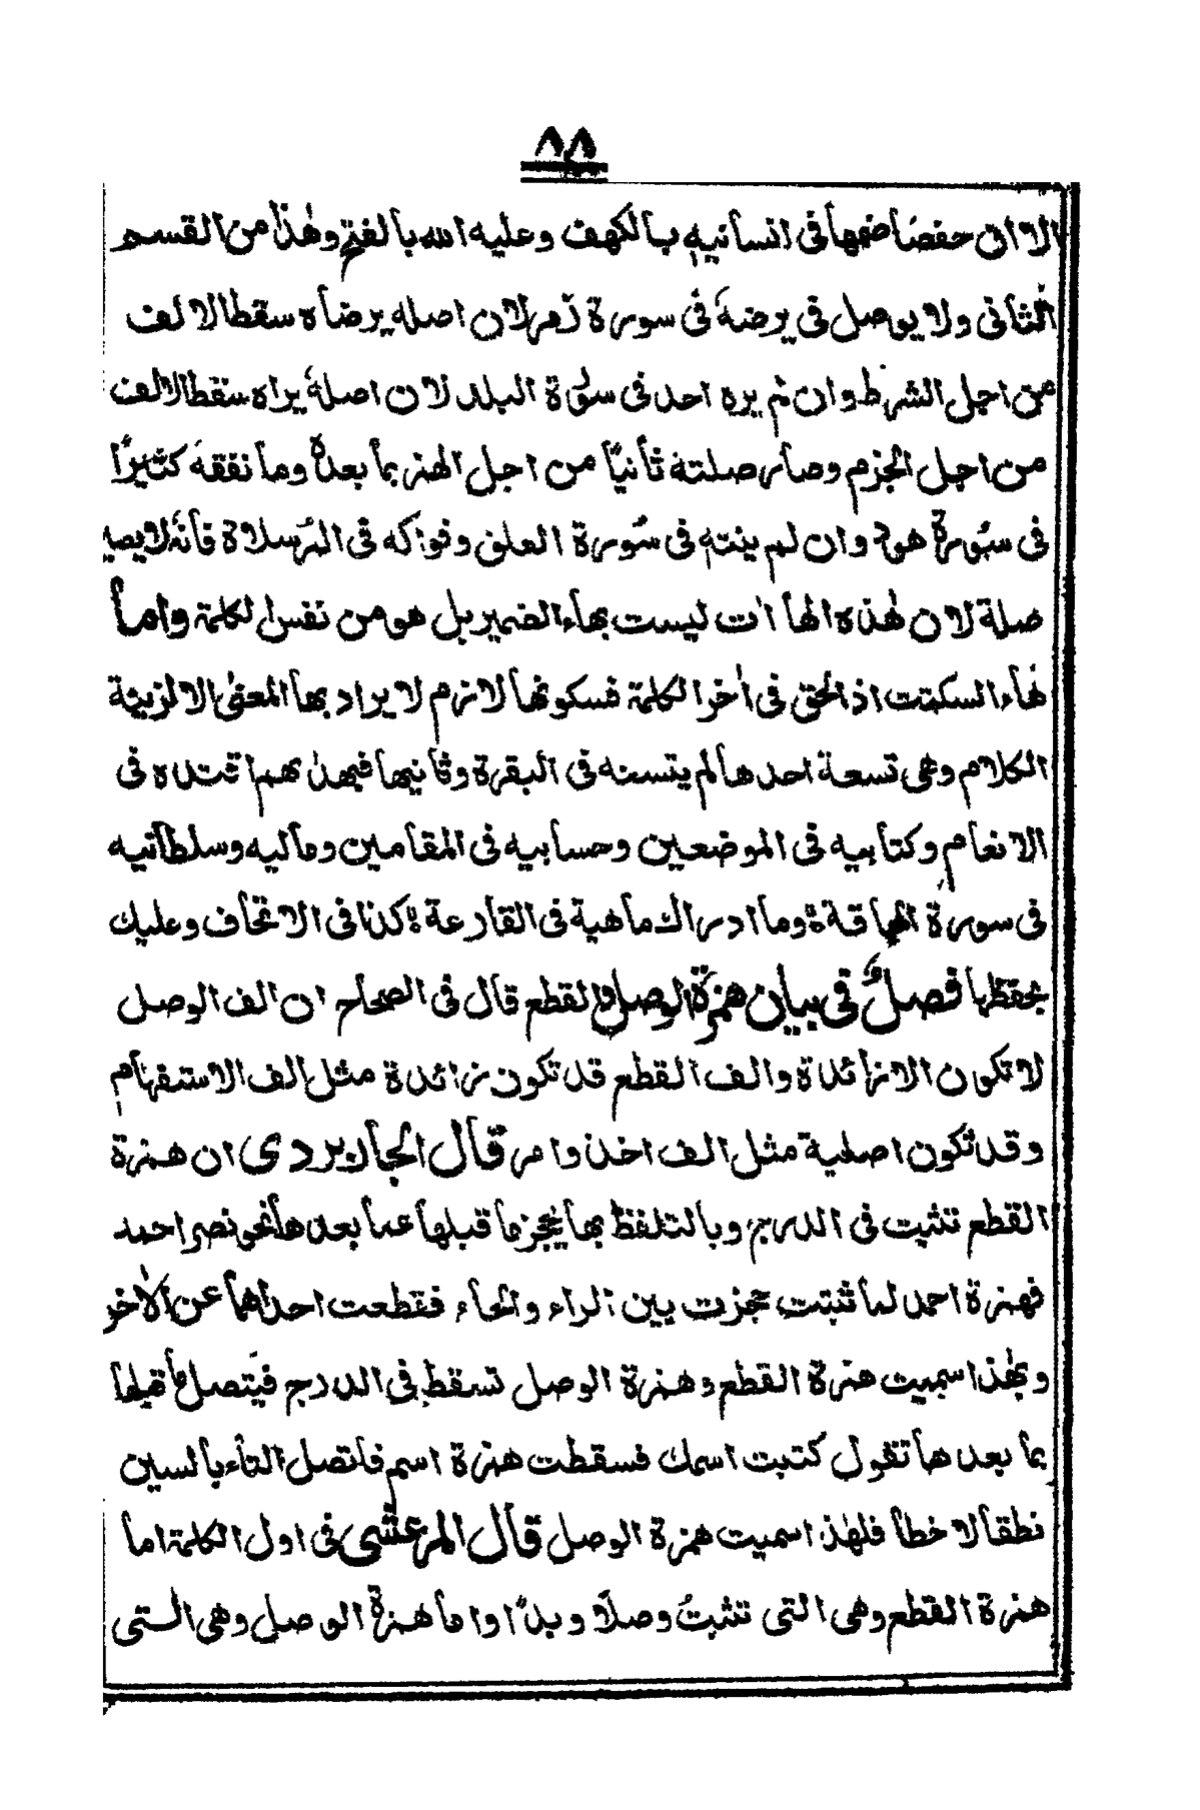 ٨٨
الا ان حفصا ضمها فى انسانيه بالكهف وعليه الله بالفتح وهذا من القسم
الثانى ولا يوصل فى يرضه فى سورة زمر لان اصله يرضاه سقط الالف
من اجل الشرط وان لم يره احد فى سورة البلد لان اصله يراه سقط الالف
من اجل الجزم وصار صلته ثانيا من اجل الهمز بما بعده وما نفقه كثيرًا
فى سورة هود وان لم ينته فى سورة العلق وفواكه فى المرسلاة فانه لا يصير
صلة لان هذه الهاآت ليست بهاء الضمير بل هو من نفس الكلمة واما
هاء السكتت اذ الحق فى اخر الكلمة فسكونها لازم لا يراد بها المعنى الا لزينة
الكلام وهى تسعة احدها لم يتسنه فى البقرة وثانيها فبهدىهم اقتده فى
الانعام وكتابيه فى الموضعين وحسابيه فى المقامين وماليه وسلطانيه
فى سورة الحاقة وما ادراك ماهية فى القارعة كذا فى الاتحاف وعليك
بحفظها فصل فى بيان همزة الوصل والقطع قال فى الصحاح ان الف الوصل
لا تكون الا زائدة والف القطع قد تكون زائدة مثل الف الاستفهام
وقد تكون اصلية مثل الف اخذ وامر قال الجاربردى ان همزة
القطع تثبت فى الدرج وبالتلفظ بها يحجز ما قبلها عما بعدها نحو نصر احمد
فهمزة احمد لما ثبتت حجزت بين الراء والحاء فقطعت احداهما عن الاخر
وبهذا سميت همزة القطع وهمزة الوصل تسقط فى الدرج فيتصل ما قبلها
بما بعدها تقول كتبت اسمك فسقطت همزة اسم فاتصل التاء بالسين
نطقا لا خطا فلهذا سميت همزة الوصل قال المرعشى فى اول الكلمة اما
همزة القطع وهى التى تثبت وصلا وبدا واما همزة الوصل وهى التى